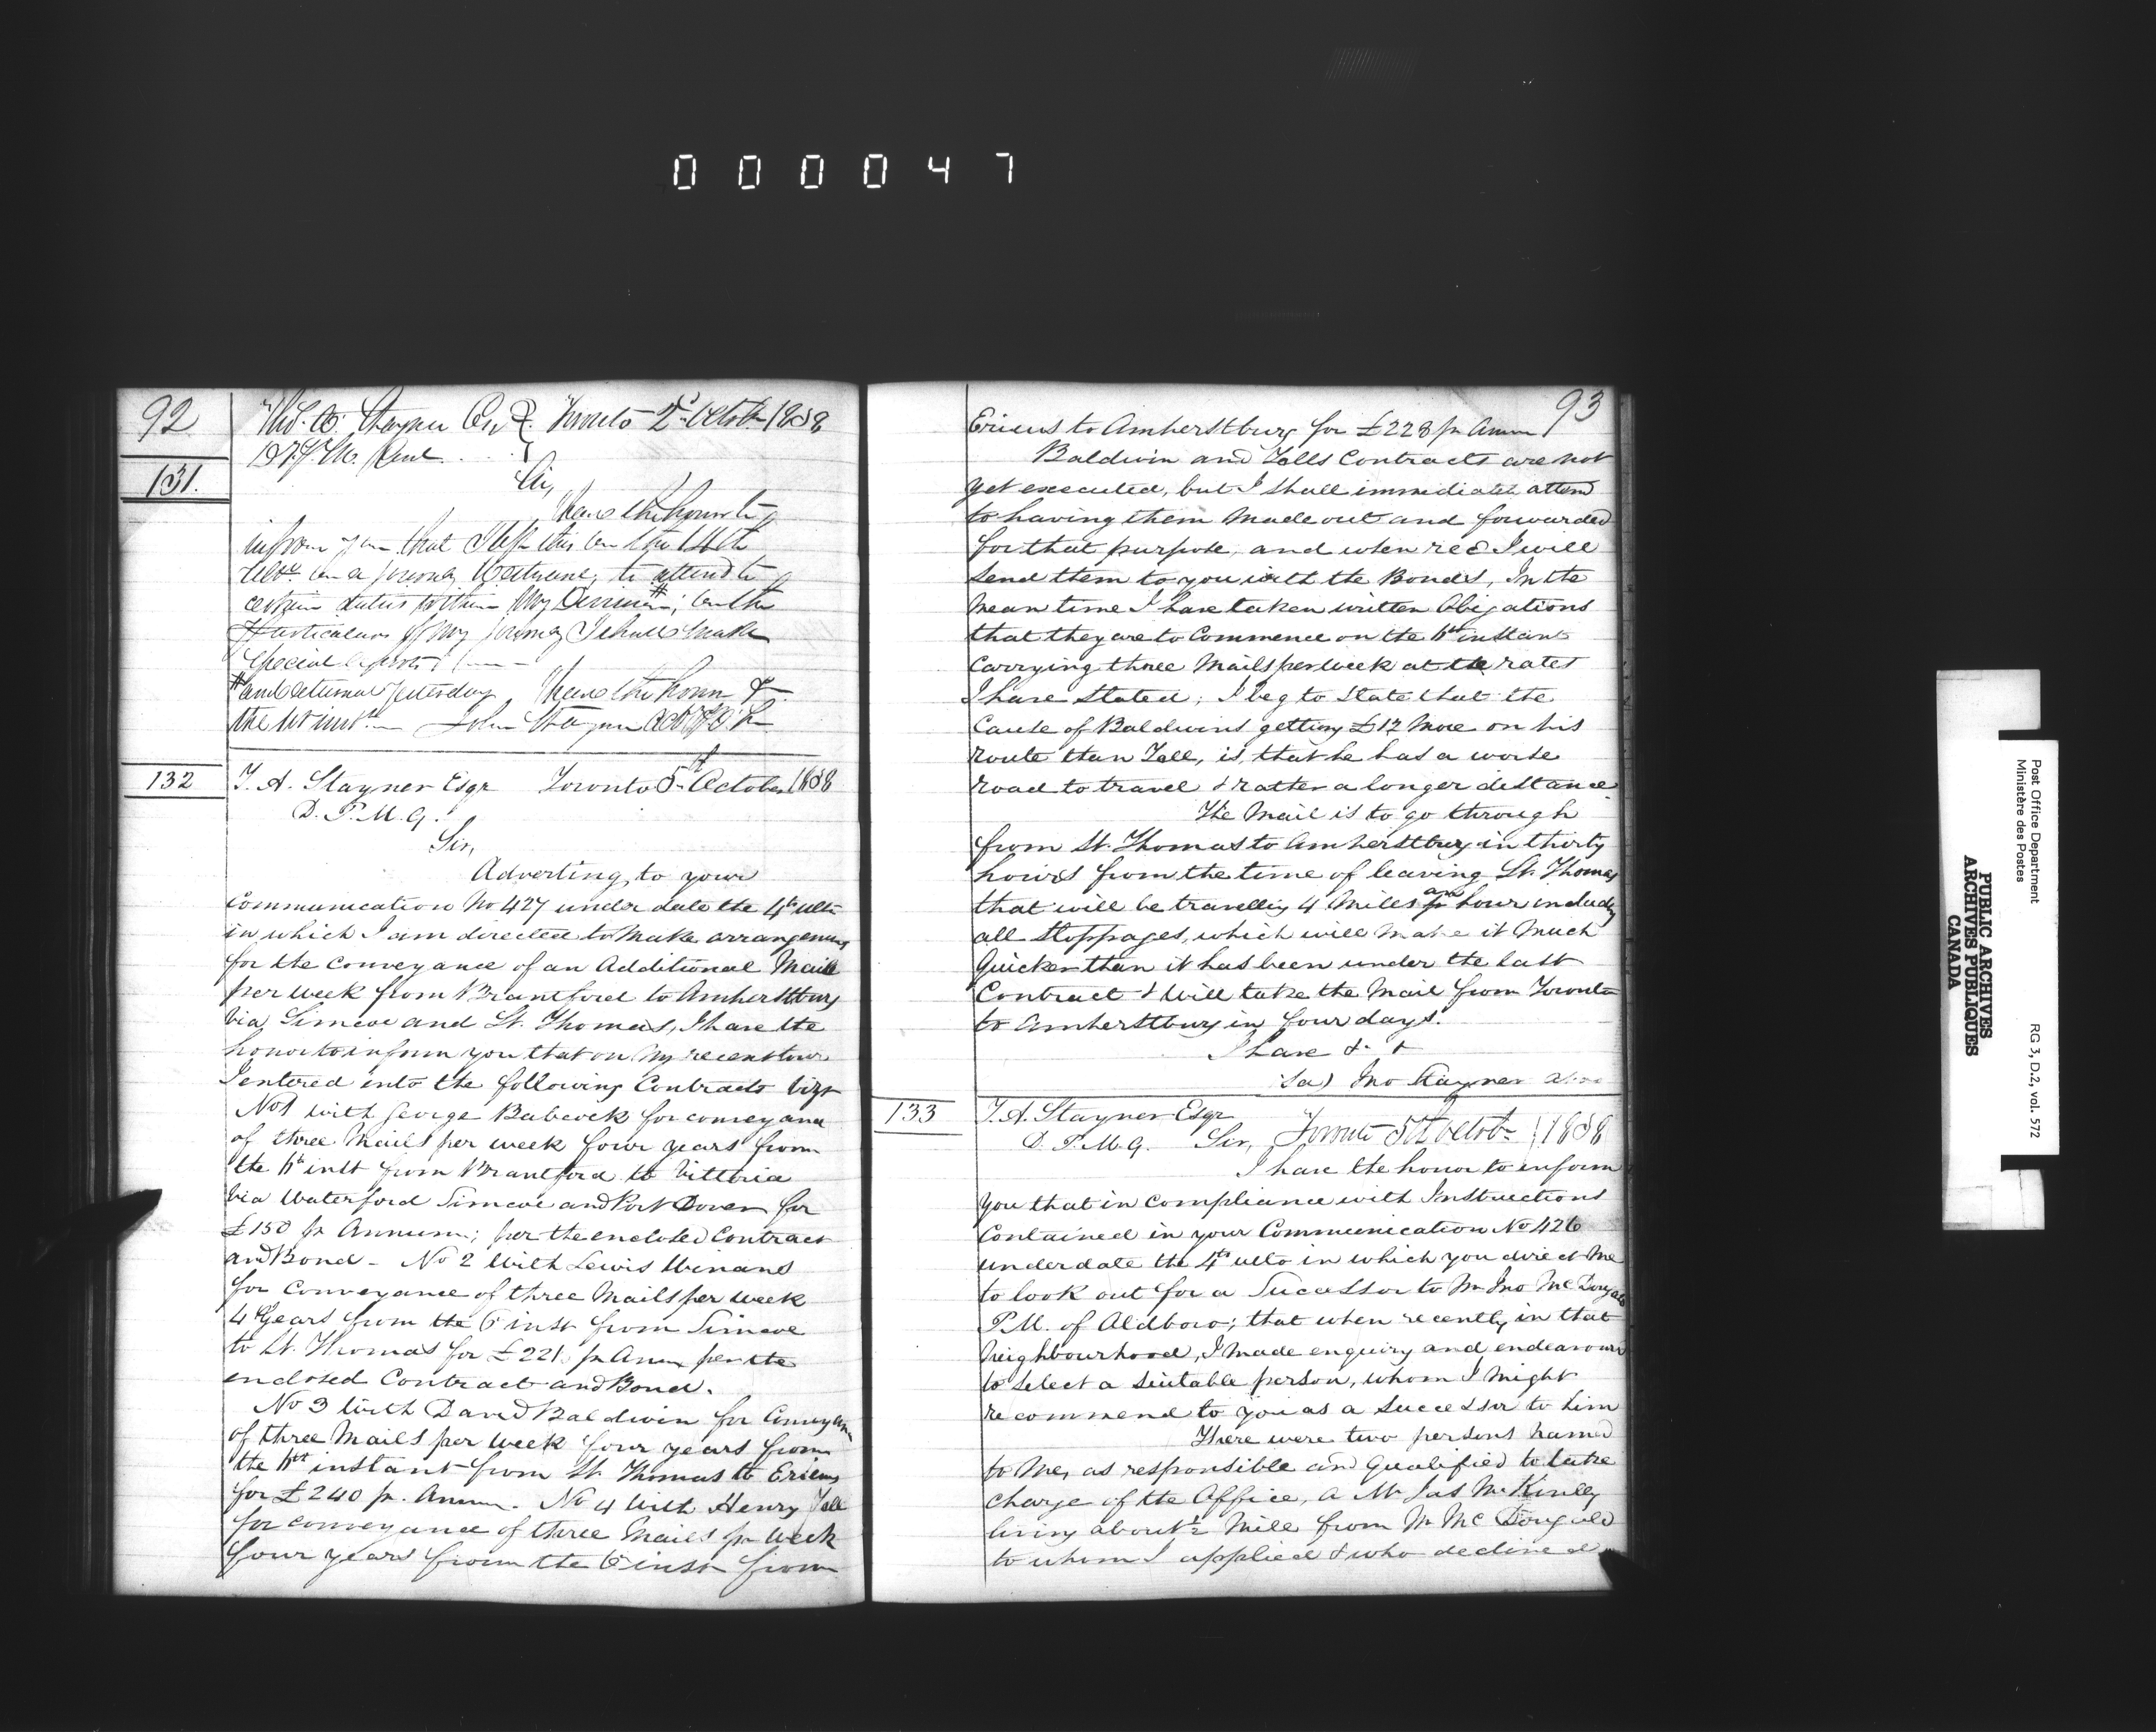 000047
92
Thos. A. Stayner Esqr Toronto 2d October 1838
D.P.M. Genl.
131.
Sir,
I have the honor to
inform you that I left this on the 14th
Ulto. on a journey Westward, to attend to
certain duties within my Division #; on the
Particulars of my journey I shall make
Special reports
# and returned yesterday I have the honor &
the 1st inst. John Stayner
132
T. A. Stayner Esqr Toronto 5th October 1838
D. P. M. G.
Sir,
Adverting to your
Communication No 427 under date the 4th ulto
in which I am directed to make arrangements
for the conveyance of an Additional Mail
per week from Brantford to Amherstburg
via Simcoe and St. Thomas, I have the
honor to inform you that on my recent tour
I entered into the following Contracts Vizt
No 1 with George Babcock for conveyance
of three Mails per week four years from
the 6th inst from Brantford to Vittoria
via Waterford Simcoe and Port Dover for
£150 pr Annum; per the enclosed Contract
and Bond - No 2 With Lewis Winans
for Conveyance of three Mails per week
4 Years from the 6 inst from Simcoe
to St. Thomas for £221. pr Annm per the
enclosed Contract and Bond.
No 3 With David Baldwin for Conveyance
of three Mails per week four years from
the 6th instant from St. Thomas to Erieus
for £240 pr. Annum. No 4 With Henry Tell
for conveyance of three Mails pr Week
four years from the 6 inst from
93
Erieus to Amherstburg for £228 pr Annum
Baldwin and Tells Contracts are not
yet executed, but I shall immediately attend
to having them made out and forwarded
for that purpose, and when recd I will
send them to you with the Bonds, In the
mean time I have taken written Obligations
that they are to Commence on the 6th instant
Carrying three Mails per week at the rates
I have Stated; I beg to State that the
Cause of Baldwins getting £12 More on his
route than Tell, is, that he has a worse
road to travel & rather a longer distance
The Mail is to go through
from St. Thomas to Amherstburg in thirty
hours from the time of leaving St. Thomas
that will be travelling 4 Miles an hour including
all Stoppages, which will make it much
Quicker than it has been under the last
Contract & will take the Mail from Toronto
to Amherstburg in four days.
I have & &
Sd) Jno Stayner
133
T. A. Stayner Esqr
D. P. M. G. Sir, Toronto 5th October 1838
I have the honor to inform
you that in compliance with Instructions
Contained in your Communication No 426
under date the 4th ulto in which you direct me
to look out for a Successor to Mr Jno McDougald
P.M. of Aldboro; that when recently in that
Neighbourhood, I made enquiry and endeavoured
to select a suitable person, whom I might
recommend to you as a Successor to him
There were two persons named
to Me, as responsible and Qualified to take
charge of the Office, a Mr Jas McKinley
living about ½ Mile from Mr McDougald
to whom I applied & who declined
Post Office Department
Ministère des Postes
RG 3, D.2, vol. 572
PUBLIC ARCHIVES
ARCHIVES PUBLIQUES
CANADA